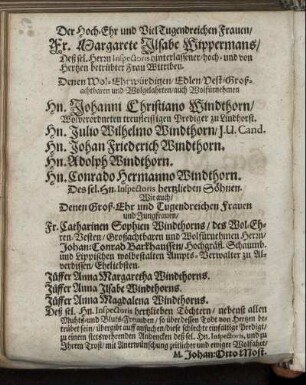 Der Hoch-Ehr und Viel Tugendreichen Frauen/
Fr. Margarete Ilsabe Wippermans/
Deß sel. Herrn Inspectoris hinterlassener/ hoch- und von
Hertzen betrübter Frau Wittiben.
Denen Wol-Ehrwürdigen/ Edlen Vest/ Groß-
achtbaren und Wolgelahrten/ auch Wolfürnehmen
Hn. Johanni Christiano Windthorn/
Wolverordneten treufleissigen Prediger zu Lindhorst.
Hn. Julio Wilhelmo Windthorn/ J.U. Cand.
Hn. Johan Friederich Windthorn.
Hn. Adolph Windthorn.
Hn. Conrado Hermanno Windthorn.
Des sel. Hn. Inspectoris hertzlieben Söhnen.
Wie auch/
Denen Groß-Ehr und Tugendreichen Frauen
und Jungfrauen/
Fr. Catharinen Sophien Windthorns/ des Wol-Eh-
ren-Vesten/ Großachtbaren und Wolfürnehmen Herrn/
Johan: Conrad Barkhausen/ Hochgräfl. Schaumb.
und Lippischen wolbestalten Ampts-Verwalter zu Al-
verdissen/ Eheliebsten.
Jüffer Anna Margaretha Windthorns.
Jüffer Anna Ilsabe Windthorns.
Jüffer Anna Magdalena Windthorns.
Deß sel. Hn. Inspectoris hertzlieben Töchtern/ nebenst allen
Muhts- und Bluts-Freunden/ so über dessen Todt von Hertzen be-
trübet sein/ übergibt auff ansuchen/ diese schlechte einfältige Predigt/
zu einem stetswehrenden Andencken des sel. Hn. Inspectoris, und zu
Ihrem Trost mit Anerwünschung zeitlicher und ewiger Wolfahrt/
M. Johan: Otto Most.